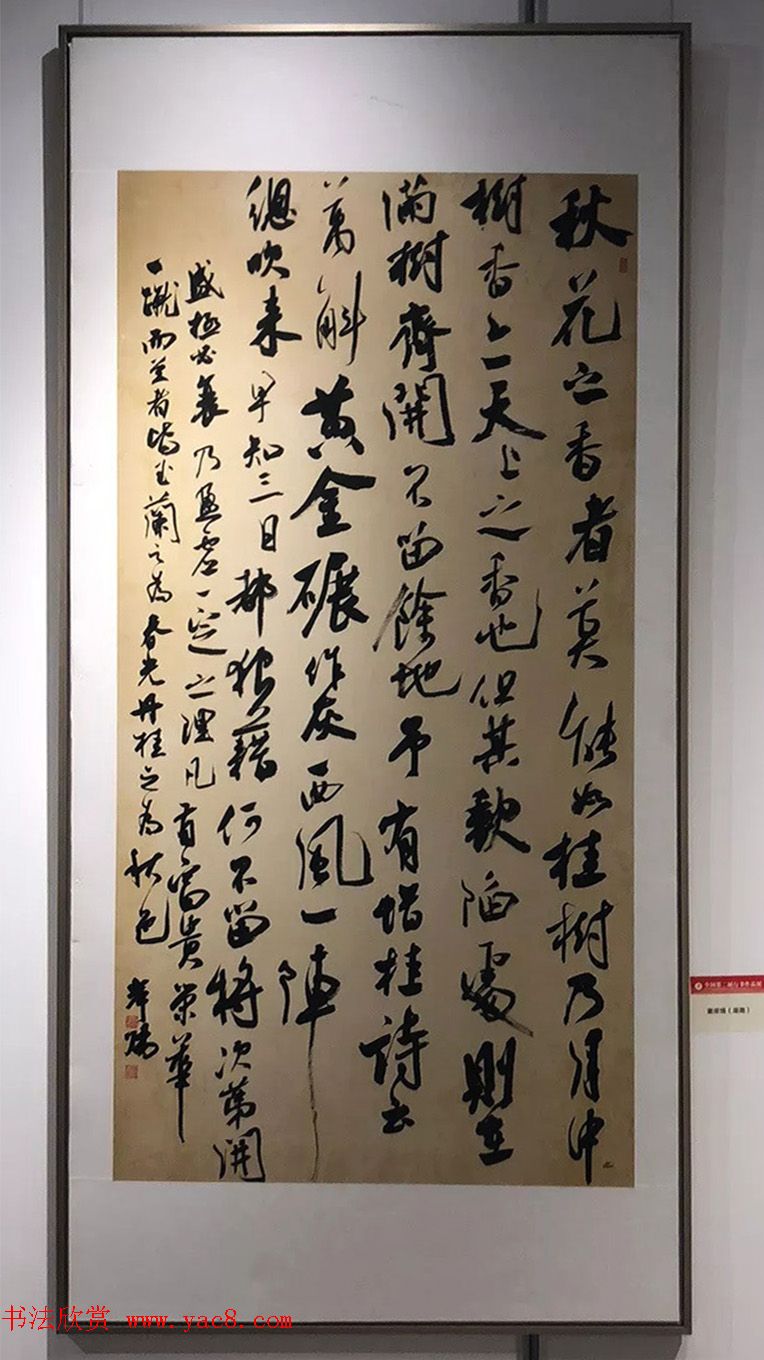 秋花之香者莫能如桂樹乃月中
樹香亦天上之香也但其缺陷處則在
滿樹齊開不留餘地予有惜桂詩云
萬斛黃金碾作灰西風一陣
總吹來早知三日都狼藉何不留將次第開
盛極必衰乃盈虛一定之理凡有富貴榮華
一蹴而至者皆玉蘭之為春光丹桂之為秋色
全国第二届行书作品展
书法欣赏 www.yac8.com